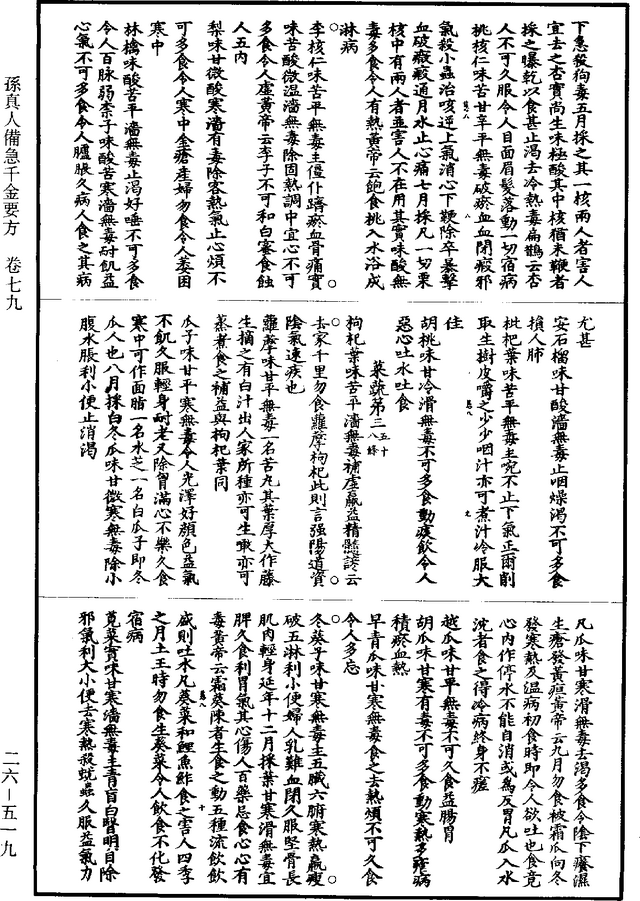 下急殺狗毒五月採之其一核兩人者害人
宜去之杏實尚生味極酸其中核猶未鞕者
採之曝乾以食甚止渴去冷熱毒扁鵲云杏
人不可久服令人目盲眉髮落動一切宿病
桃核仁味苦甘辛平無毒破瘀血血閉瘕邪
氣殺小蟲治咳逆上氣消心下鞕除卒暴擊
血破癥瘕通月水止心痛七月採凡一切果
核中有兩人者並害人不在用其實味酸無
毒多食令人有熱黃帝云飽食桃入水浴成
淋病
李核仁味苦平無毒主僵仆躋瘀血骨痛實
味苦酸微温濇無毒除固熱調中宜心不可
多食令人虛黃帝云李子不可和白蜜食蝕
人五內
梨味甘微酸寒濇有毒除客熱氣止心煩不
可多食令人寒中金瘡產婦勿食令人萎困
寒中
林檎味酸苦平濇無毒止渴好唾不可多食
令人百脉弱柰子味酸苦寒濇無毒耐飢益
心氣不可多食令人臚脹久病人食之其病
尤甚
安石榴味甘酸濇無毒止咽燥渴不可多食
損人肺
枇杷葉味苦平無毒主啘不止下氣正爾削
取生樹皮嚼之少少咽汁亦可煮汁冷服大
佳
胡桃味甘冷滑無毒不可多食動痰飲令人
惡心吐水吐食
菜蔬第三五十八條
枸杞葉味苦平濇無毒補虛羸益精髓諺云
去家千里勿食蘿摩枸杞此則言强陽道資
陰氣速疾也
蘿摩味甘平無毒一名苦丸其葉厚大作藤
生摘之有白汁出人家所種亦可生噉亦可
蒸煮食之補益與枸杞葉同
瓜子味甘平寒無毒令人光澤好顏色益氣
不飢久服輕身耐老又除胷滿心不樂久食
寒中可作面脂一名水芝一名白瓜子即冬
瓜人也八月採白冬瓜味甘微寒無毒除小
腹水脹利小便止消渴
凡瓜味甘寒滑無毒去渴多食令陰下癢濕
生瘡發黃疸黃帝云九月勿食被霜瓜向冬
發寒熱及温病初食時即令人欲吐也食竟
心內作停水不能自消或為反胃凡瓜入水
沈者食之得冷病終身不瘥
越瓜味甘平無毒不可久食益腸胃
胡瓜味甘寒有毒不可多食動寒熱多瘧病
積瘀血熱
早青瓜味甘寒無毒食之去熱煩不可久食
令人多忘
冬葵子味甘寒無毒主五臟六腑寒熱羸瘦
破五淋利小便婦人乳難血閉久服堅骨長
肌肉輕身延年十二月採葉甘寒滑無毒宜
脾久食利胃氣其心傷人百藥忌食心心有
毒黃帝云霜葵陳者生食之動五種流飲飲
盛則吐水凡葵菜和鯉魚鮓食之害人四季
之月土王時勿食生葵菜令人飲食不化發
宿病
莧菜實味甘寒濇無毒主青盲白瞖明目除
邪氣利大小便去寒熱殺蚘蟲久服益氣力
孫真人備急千金要方 卷七九
二六—五一九